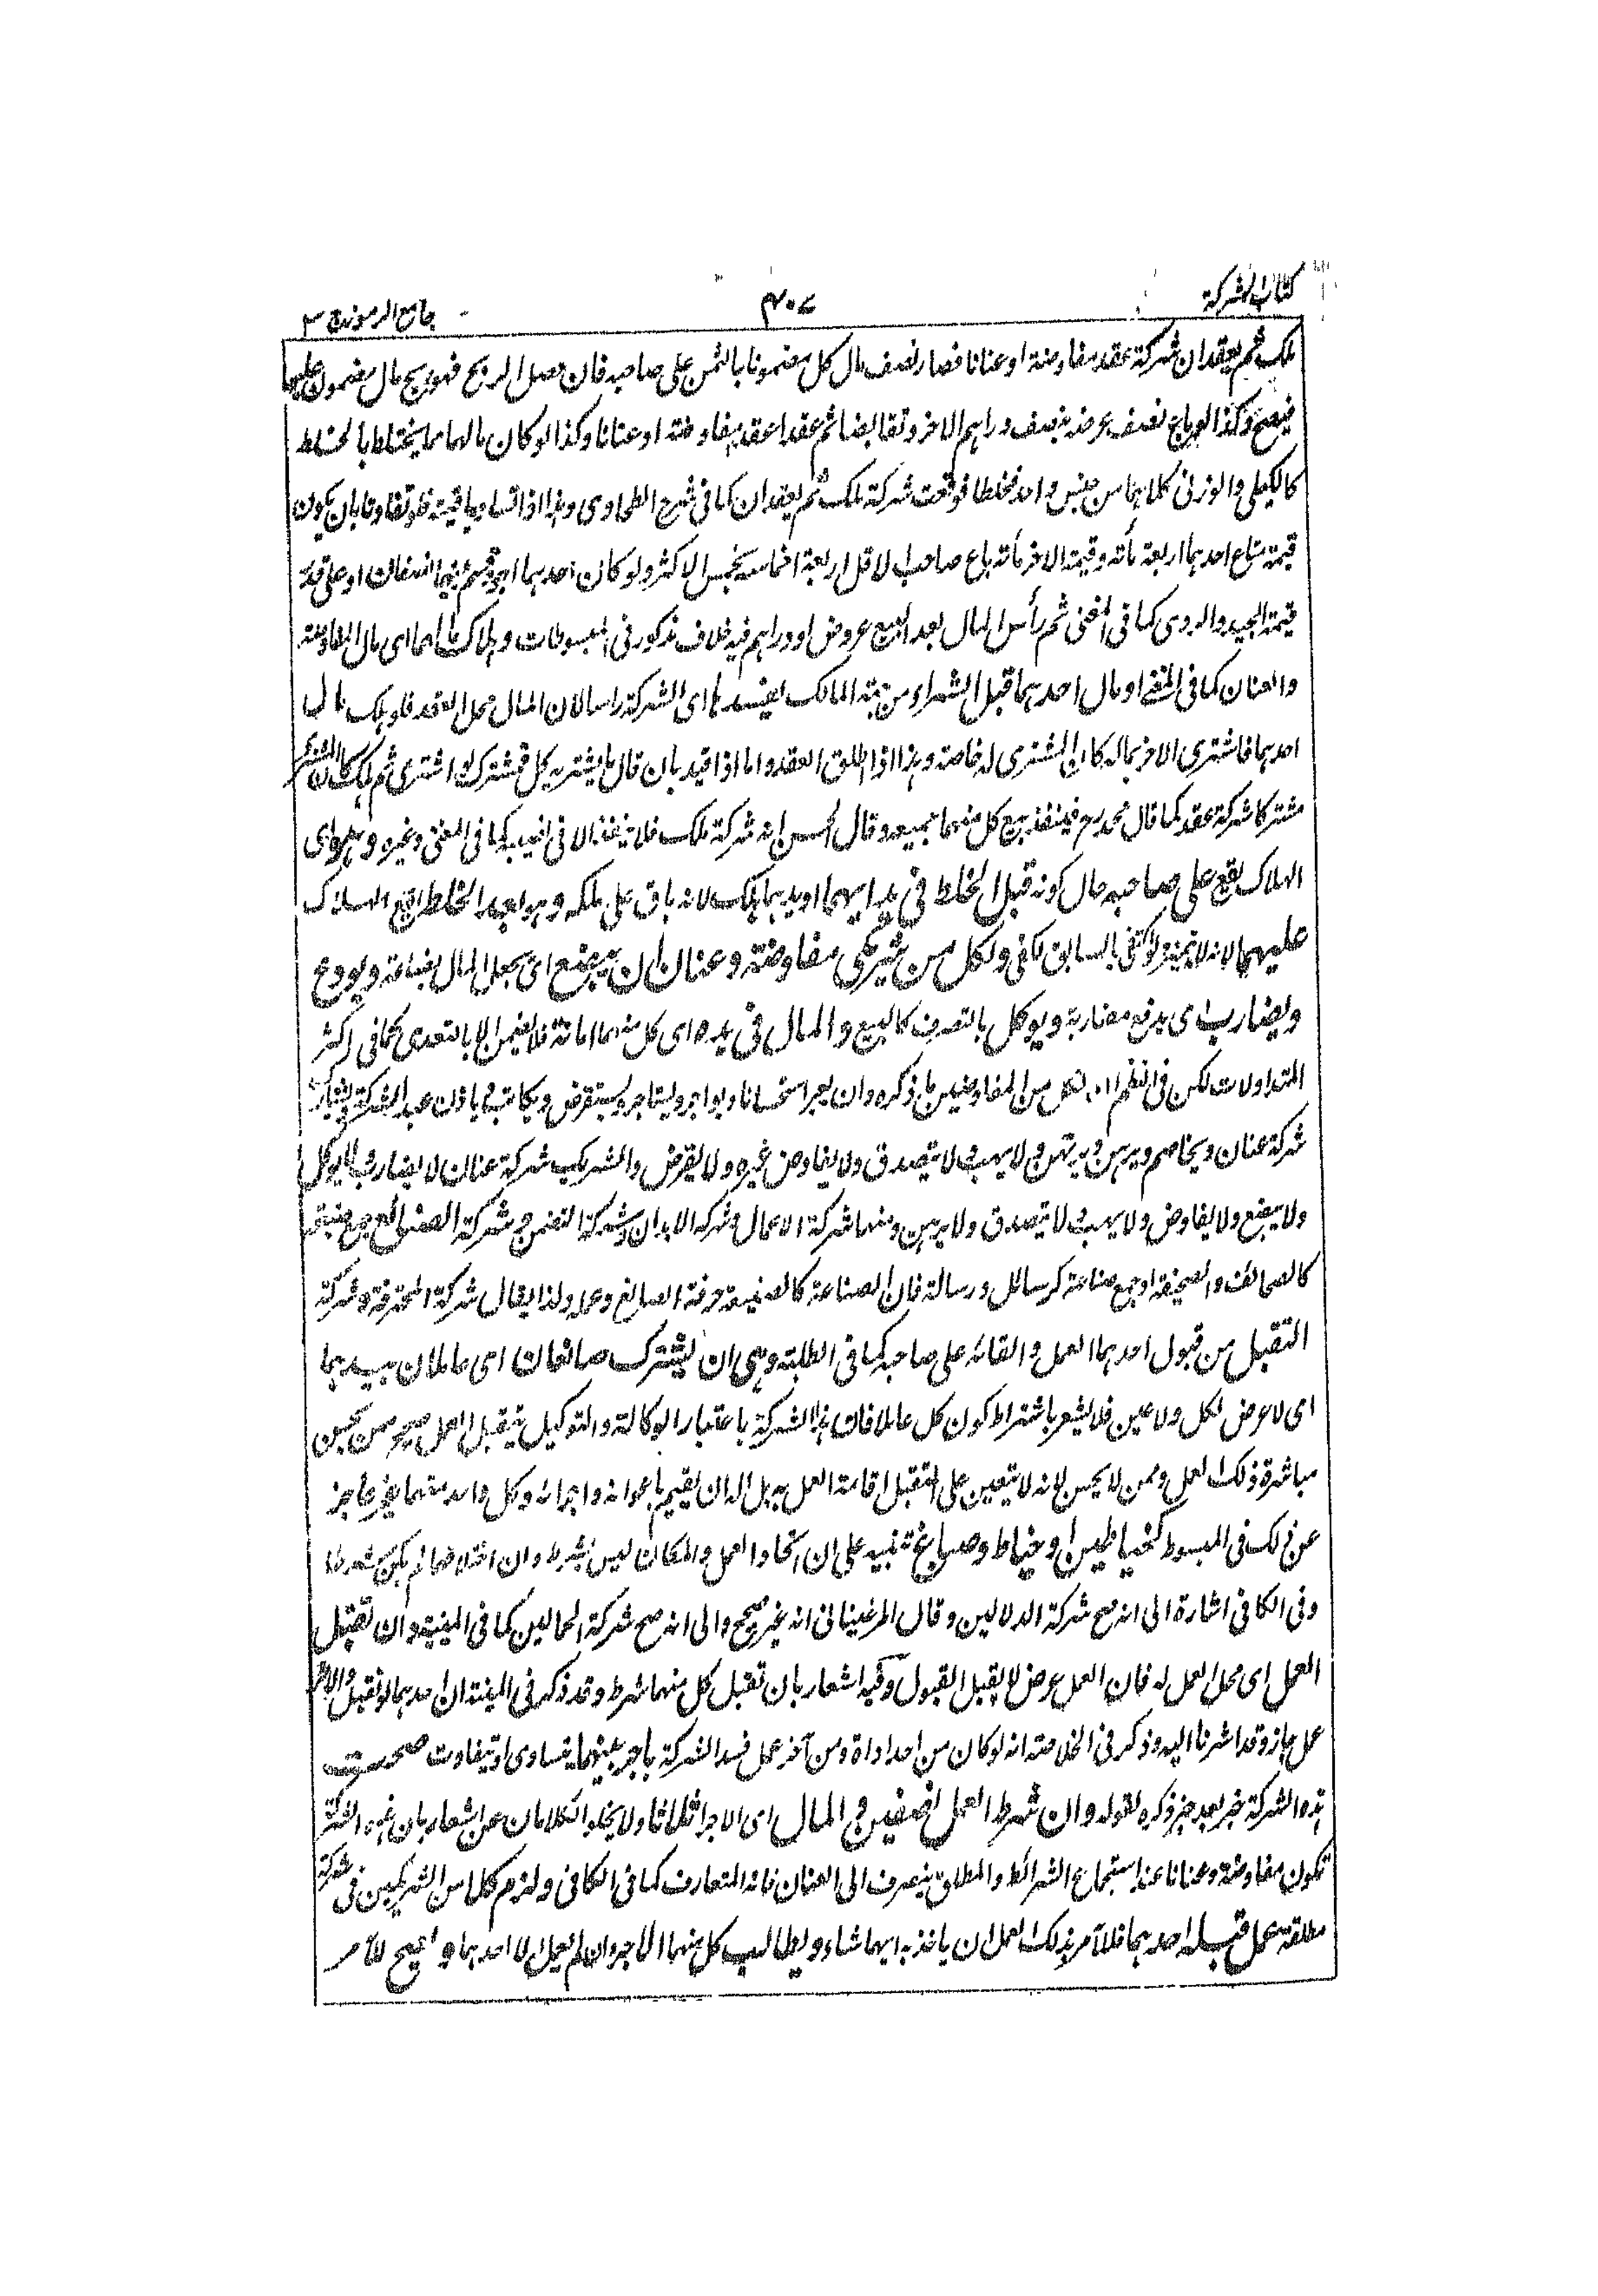 كتاب الشركة
٣٠٧
جامع الرموز ج ٣
ملك ثم يعقدان شركة عقد مفاوضة او عنانا فصار نصف مال كل مضمونا بالثمن على صاحبه فان حصل الربح فهو ربح مال مضمون عليهما
فيصح وكذا لو باع نصف عرضه بنصف دراهم الاخر وتقابضا ثم عقدا عقد مفاوضة او عنانا وكذا لو كان مالهما مما يختلط بالخلط
كالكيلي والوزني كلاهما من جنس واحد فخلطا فوقعت شركة ملك ثم يعقدان كما في شرح الطحاوي وهذا اذا تساويا قيمة فلو تفاوتا بان يكون
قيمة متاع احدهما اربعة مأته وقيمة الاخر مأته باع صاحب الاقل اربعة اخماسه بخمس الاكثر ولو كان احدهما اجود قسم بينهما نصفان او على قدر
قيمة الجيد والردي كما في المغني ثم رأس المال بعد البيع عروض او دراهم فيه خلاف مذكور في المبسوطات وهلاك مالهما اى مال المفاوضة
والعنان كما في او مال احدهما قبل الشراء من المالك يفسدها اى الشركة راسا لان المال محل العقد فلو هلك مال
احدهما فاشترى الاخر بماله كان المشترى له خاصة وهذا اذا اطلق العقد واما اذا قيد بان قال ما يشتريه كل فمشترك لو اشترى ثم هلك كان المشترى
مشتركا شركة عقد كما قال محمد رح فينفذ بيع كل منهما بجميعه وقال الحسن انه شركة ملك فلا ينفذ الا في نصيبه كما في المغني وغيره وهو اى
الهلاك يقع على صاحبه حال كونه قبل الخلط في يد ايهما او يدهما هلك لانه باق على ملكه وهو بعد الخلط يقع الهلاك
عليهما لانه لا يتميز ولو اكتفى بالسابق لكفى ولكل من شريكي مفاوضة وعنان ان يبضع اى يجعل المال بضاعة ويودع
ويضارب اى يدفع مضاربة ويوكل بالتصرف كالبيع والمال في يده اى كل منهما امانة فلا يضمن الا بالتعدى كما في اكثر
المتداولات لكن في النظم ان لكل من المفاوضين ما ذكره وان يعير استحسانا ويواجر ويستاجر ويستقرض ويكاتب و ياذن عبد الشركة ويشارك
شركة عنان ويخاصم ويرهن ويرتهن ولا يهب ولا يتصدق ولا يفاوض غيره ولا يقرض والشريك شركة عنان لا يضارب ولا يوكل
ولا يبضع ولا يفاوض ولا يهب ولا يتصدق ولا يرهن ومنها شركة الاعمال وشركة الابدان وشركة التضمن وهي شركة الصنائع جمع صنيعة
كالصحائف والصحيفة او جمع صناعة كرسائل ورسالة فان الصناعة كالصنيعة حرفة الصانع وعمله ولذا يقال شركة المحترفة وشركة
التقبل من قبول احدهما العمل والقائه على صاحبه كما في الطلبة وهي ان يشترك صانعان اى عاملان بيدهما
اى لا عرض لكل ولا عين فلا يشعر باشتراط كون كل عاملا فان هذا الشركة باعتبار الوكالة والتوكيل يتقبل العمل صحيح ممن يحسن
مباشرة ذلك العمل وممن لا يحسن لانه لا يتعين على المتقبل اقامة العمل بيده بل له ان يقيم باعوانه واجرائه وكل واحد منهما غير عاجز
عن ذلك في المبسوط كخياطين او خياط وصباغ تنبيه على ان اتحاد العمل والمكان ليس بشرط وان اختلافهما لم يكن شرطا
وفي الكافي اشارة الى انه صح شركة الدلالين وقال المرغيناني انه غير صحيح والى انه صح شركة الحمالين كما في المنية وان تقبل
العمل اى محل العمل له فان العمل عرض لا يقبل القبول وفيه اشعار بان تقبل كل منهما شرط وقد ذكر في المنية ان احدهما لو تقبل والاخر
عمل جاز وقد اشرنا اليه وذكر في الخلاصة انه لو كان من احد اداة ومن آخر عمل فسد الشركة باجر بينهما يتساوى او يتفاوت صحت
هذه الشركة خبر بعد خبر ذكره لقوله وان شرط العمل نصفين والمال اى الاجر اثلاثا ولا يخلو الكلامان عن اشعار بان هذه الشركة
تكون مفاوضة وعنانا عند استجماع الشرائط والمطلق ينصرف الى العنان فانه المتعارف كما في الكافي ولزم كلا من الشريكين في شركة
مطلقة عمل قبله احدهما فللآمر بذلك العمل ان ياخذ به ايهما شاء ويطالب كل منهما الاجر وان لم يعمل الا احدهما و يصح للآمر